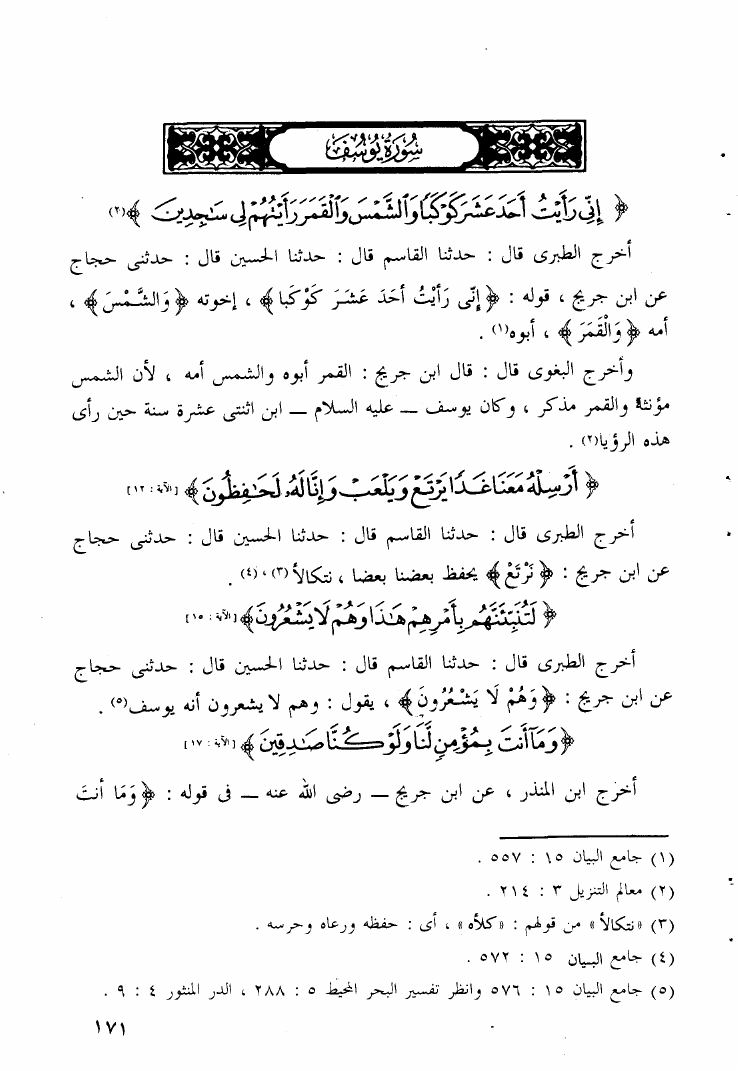 سُورَةُ يُوسُفَ
﴿ إِنِّى رَأَيْتُ أَحَدَ عَشَرَ كَوْكَبًا وَالشَّمْسَ وَالْقَمَرَ رَأَيْتُهُمْ لِى سَـٰجِدِينَ ﴾(٢)
أخرج الطبرى قال : حدثنا القاسم قال : حدثنا الحسين قال : حدثنى حجاج
عن ابن جريج ، قوله : ﴿ إِنِّى رَأَيْتُ أَحَدَ عَشَرَ كَوْكَبًا ﴾ ، إخوته ﴿ وَالشَّمْسَ ﴾ ،
أمه ﴿ وَالْقَمَرَ ﴾ ، أبوه(١) .
وأخرج البغوى قال : قال ابن جريج : القمر أبوه والشمس أمه ، لأن الشمس
مؤنثة والقمر مذكر ، وكان يوسف ــ عليه السلام ــ ابن اثنتى عشرة سنة حين رأى
هذه الرؤيا(٢) .
﴿ أَرْسِلْهُ مَعَنَا غَدًا يَرْتَعْ وَيَلْعَبْ وَإِنَّا لَهُۥ لَحَـٰفِظُونَ ﴾ [الآية : ١٢]
أخرج الطبرى قال : حدثنا القاسم قال : حدثنا الحسين قال : حدثنى حجاج
عن ابن جريج : ﴿ نَرْتَعْ ﴾ يحفظ بعضنا بعضا ، نتكالأ(٣)،(٤) .
﴿ لَتُنَبِّئَنَّهُم بِأَمْرِهِمْ هَـٰذَا وَهُمْ لَا يَشْعُرُونَ ﴾ [الآية : ١٥]
أخرج الطبرى قال : حدثنا القاسم قال : حدثنا الحسين قال : حدثنى حجاج
عن ابن جريج : ﴿ وَهُمْ لَا يَشْعُرُونَ ﴾ ، يقول : وهم لا يشعرون أنه يوسف(٥) .
﴿ وَمَآ أَنتَ بِمُؤْمِنٍ لَّنَا وَلَوْ كُنَّا صَـٰدِقِينَ ﴾ [الآية : ١٧]
أخرج ابن المنذر ، عن ابن جريج ــ رضى الله عنه ــ فى قوله : ﴿ وَمَا أَنتَ
(١) جامع البيان ١٥ : ٥٥٧ .
(٢) معالم التنزيل ٣ : ٢١٤ .
(٣) «نتكالأ» من قولهم : «كلأه» ، أى : حفظه ورعاه وحرسه .
(٤) جامع البيان ١٥ : ٥٧٢ .
(٥) جامع البيان ١٥ : ٥٧٦ وانظر تفسير البحر المحيط ٥ : ٢٨٨ ، الدر المنثور ٤ : ٩ .
١٧١